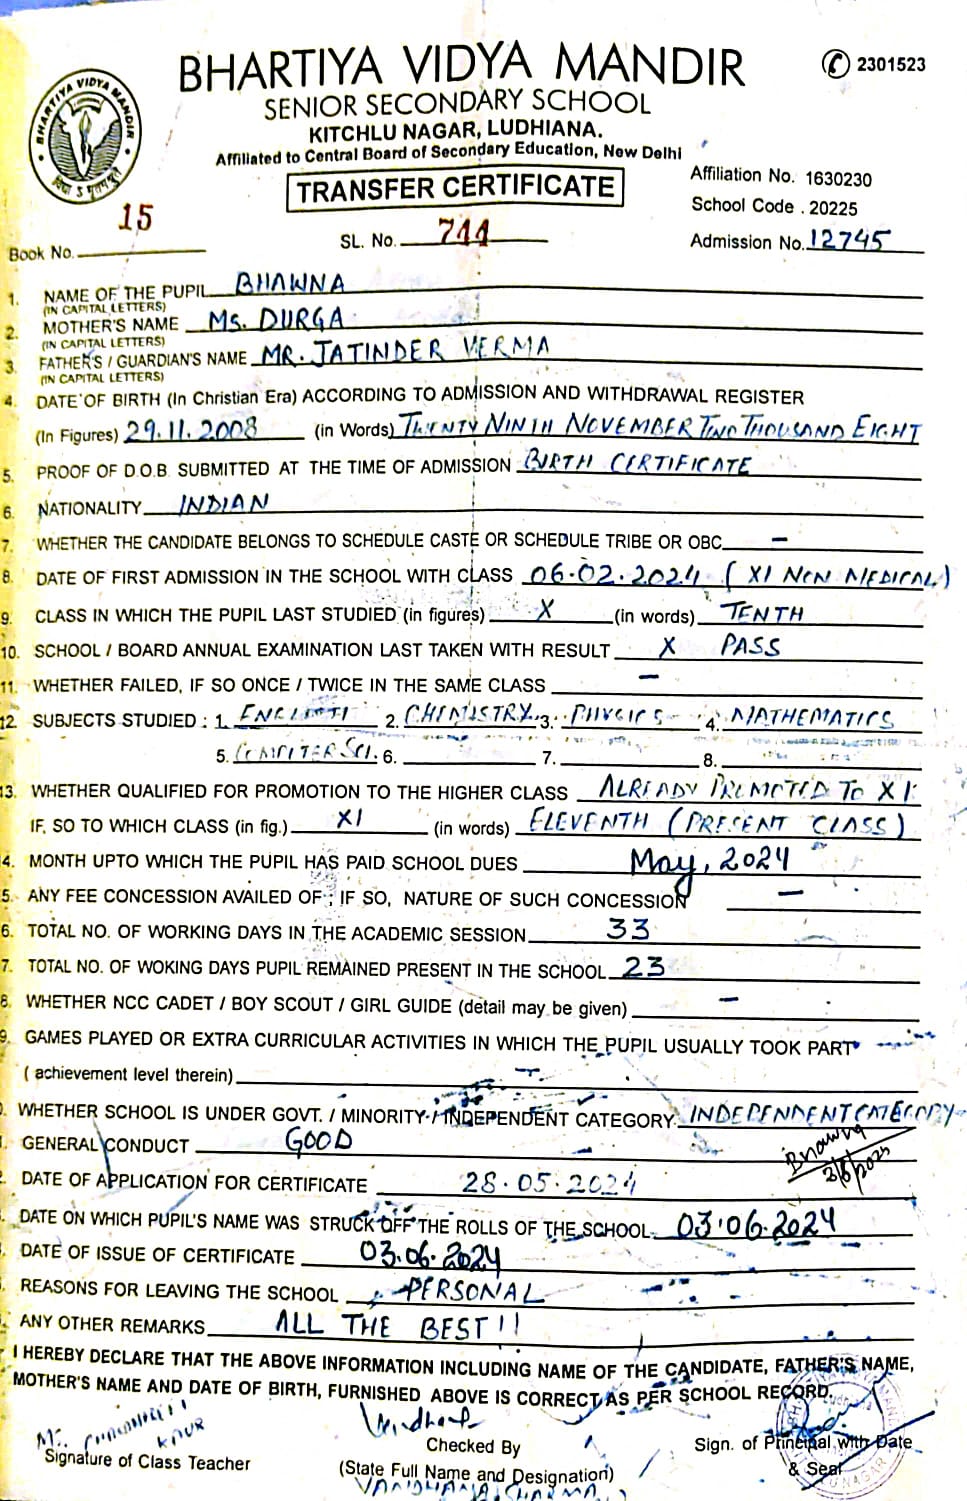 BHARTIYA VIDYA MANDIR
2301523
SENIOR SECONDARY SCHOOL
KITCHLU NAGAR, LUDHIANA.
Affiliated to Central Board of Secondary Education, New Delhi
BHARTIYA VIDYA MANDIR
TRANSFER CERTIFICATE
Affiliation No. 1630230
School Code . 20225
Book No. 15
SL. No. 744
Admission No. 12745
1. NAME OF THE PUPIL BHAWNA
(IN CAPITAL LETTERS)
2. MOTHER'S NAME MS. DURGA
(IN CAPITAL LETTERS)
3. FATHER'S / GUARDIAN'S NAME MR. JATINDER VERMA
(IN CAPITAL LETTERS)
4. DATE OF BIRTH (In Christian Era) ACCORDING TO ADMISSION AND WITHDRAWAL REGISTER
(In Figures) 29.11.2008 (in Words) TWENTY NINTH NOVEMBER TWO THOUSAND EIGHT
5. PROOF OF D.O.B. SUBMITTED AT THE TIME OF ADMISSION BIRTH CERTIFICATE
6. NATIONALITY INDIAN
7. WHETHER THE CANDIDATE BELONGS TO SCHEDULE CASTE OR SCHEDULE TRIBE OR OBC —
8. DATE OF FIRST ADMISSION IN THE SCHOOL WITH CLASS 06.02.2024 (XI NON MEDICAL)
9. CLASS IN WHICH THE PUPIL LAST STUDIED (in figures) X (in words) TENTH
10. SCHOOL / BOARD ANNUAL EXAMINATION LAST TAKEN WITH RESULT X PASS
11. WHETHER FAILED, IF SO ONCE / TWICE IN THE SAME CLASS —
12. SUBJECTS STUDIED : 1. ENGLISH 2. CHEMISTRY 3. PHYSICS 4. MATHEMATICS
5. COMPUTER SCI. 6. 7. 8.
13. WHETHER QUALIFIED FOR PROMOTION TO THE HIGHER CLASS ALREADY PROMOTED TO XI
IF, SO TO WHICH CLASS (in fig.) XI (in words) ELEVENTH (PRESENT CLASS)
4. MONTH UPTO WHICH THE PUPIL HAS PAID SCHOOL DUES May, 2024
5. ANY FEE CONCESSION AVAILED OF ; IF SO, NATURE OF SUCH CONCESSION —
6. TOTAL NO. OF WORKING DAYS IN THE ACADEMIC SESSION 33
7. TOTAL NO. OF WOKING DAYS PUPIL REMAINED PRESENT IN THE SCHOOL 23
8. WHETHER NCC CADET / BOY SCOUT / GIRL GUIDE (detail may be given) —
9. GAMES PLAYED OR EXTRA CURRICULAR ACTIVITIES IN WHICH THE PUPIL USUALLY TOOK PART
( achievement level therein) —
WHETHER SCHOOL IS UNDER GOVT. / MINORITY / INDEPENDENT CATEGORY. INDEPENDENT CATEGORY
GENERAL CONDUCT GOOD
Bhawna
DATE OF APPLICATION FOR CERTIFICATE 28.05.2024
DATE ON WHICH PUPIL'S NAME WAS STRUCK OFF THE ROLLS OF THE SCHOOL 03.06.2024
DATE OF ISSUE OF CERTIFICATE 03.06.2024
REASONS FOR LEAVING THE SCHOOL PERSONAL
ANY OTHER REMARKS ALL THE BEST!!
I HEREBY DECLARE THAT THE ABOVE INFORMATION INCLUDING NAME OF THE CANDIDATE, FATHER'S NAME,
MOTHER'S NAME AND DATE OF BIRTH, FURNISHED ABOVE IS CORRECT AS PER SCHOOL RECORD.
KAUR
Signature of Class Teacher
Checked By
(State Full Name and Designation)
VANDHANA SHARMA
Sign. of Principal with Date
& Seal